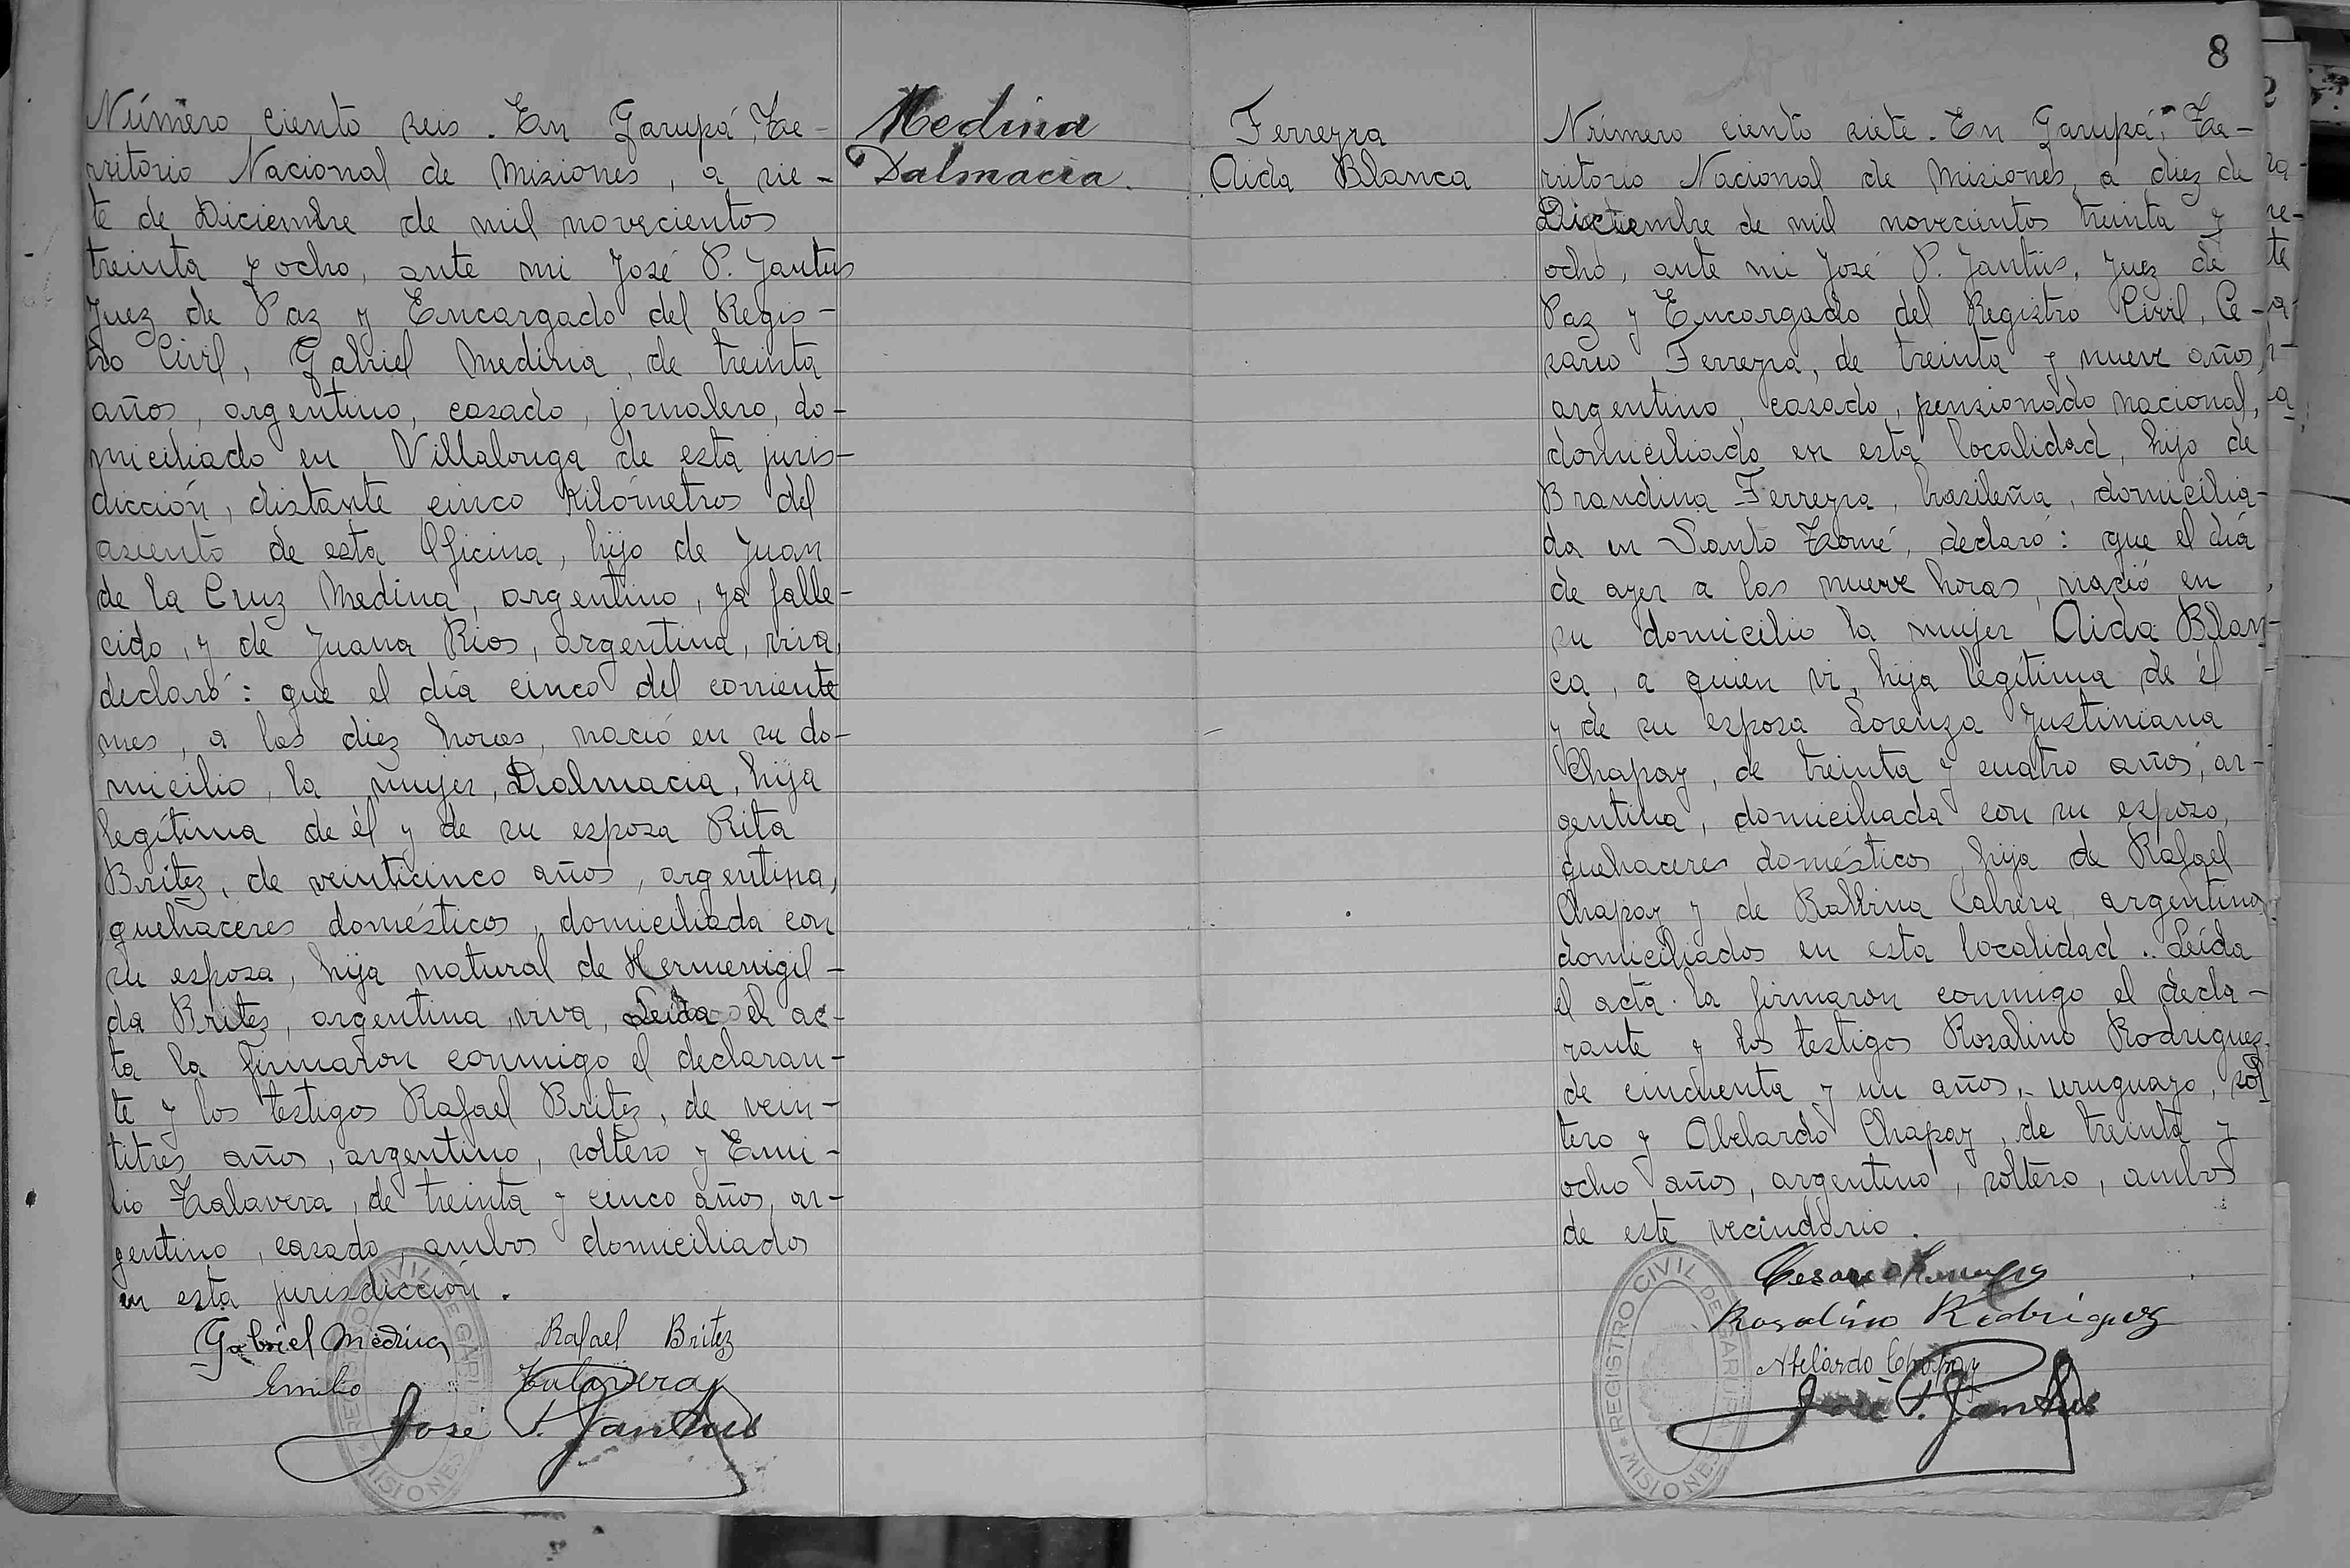 Número ciento seis. En Garupá, Te-
rritorio Nacional de Misiones, a sie-
te de Diciembre de mil novecientos
treinta y ocho, ante mi José P. Jantus
Juez de Paz y Encargado del Regis-
tro Civil, Gabriel Medina, de treinta
años, argentino, casado, jornalero, do-
miciliado en Villalonga de esta juris-
dicción, distante cinco kilómetros del
asiento de esta Oficina, hijo de Juan
de la Cruz Medina, argentino, ya falle-
cido, y de Juana Rios, argentina, viva,
declaró: que el día cinco del corriente
mes, a las diez horas, nació en su do-
micilio, la mujer, Dalmacia, hija
legítima de él y de su esposa Rita
Britez, de veinticinco años, argentina,
quehaceres domésticos, domiciliada con
su esposa, hija natural de Hermenigil-
da Britez, argentina, viva, Leída el ac-
ta la firmaron conmigo el declaran-
te y los testigos Rafael Britez, de vein-
titres años, argentino, soltero y Emi-
lio Talavera, de treinta y cinco años, ar-
gentino, casado, ambos domiciliados
en esta jurisdicción.
Gabriel Medina Rafael Britez
Emilio Talavera
José P. Jantus
REGISTRO CIVIL DE GARUPÁ
MISIONES
Medina
Dalmacia.
Ferreyra
Aida Blanca
8
Número ciento siete. En Garupá, Te-
rritorio Nacional de Misiones, a diez de
Diciembre de mil novecientos treinta y
ocho, ante mi José P. Jantus, Juez de
Paz y Encargado del Registro Civil, Ce-
sario Ferreyra, de treinta y nueve años,
argentino, casado, pensionado nacional,
domiciliado en esta localidad, hijo de
Brandina Ferreyra, brasileña, domicilia-
da en Santo Tomé, declaró: que el día
de ayer a las nueve horas, nació en
su domicilio la mujer Aida Blan-
ca, a quien vi, hija legítima de él
y de su esposa Lorenza Justiniana
Chapay, de treinta y cuatro años, ar-
gentina, domiciliada con su esposo,
quehaceres domésticos, hija de Rafael
Chapay y de Balbina Cabrera, argentinos
domiciliados en esta localidad. Leída
el acta la firmaron conmigo el decla-
rante y los testigos Rosalino Rodriguez
de cincuenta y un años, uruguayo, sol
tero y Abelardo Chapay, de treinta y
ocho años, argentino, soltero, ambos
de este vecindario.
Cesario Ferreyra
Rosalino Rodriguez
Abelardo Chapay
José P. Jantus
REGISTRO CIVIL DE GARUPÁ
MISIONES